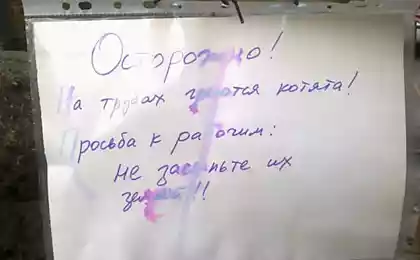 Осторожно!
На трубах греются котята!
Просьба к рабочим:
не засыпьте их
землёй!!